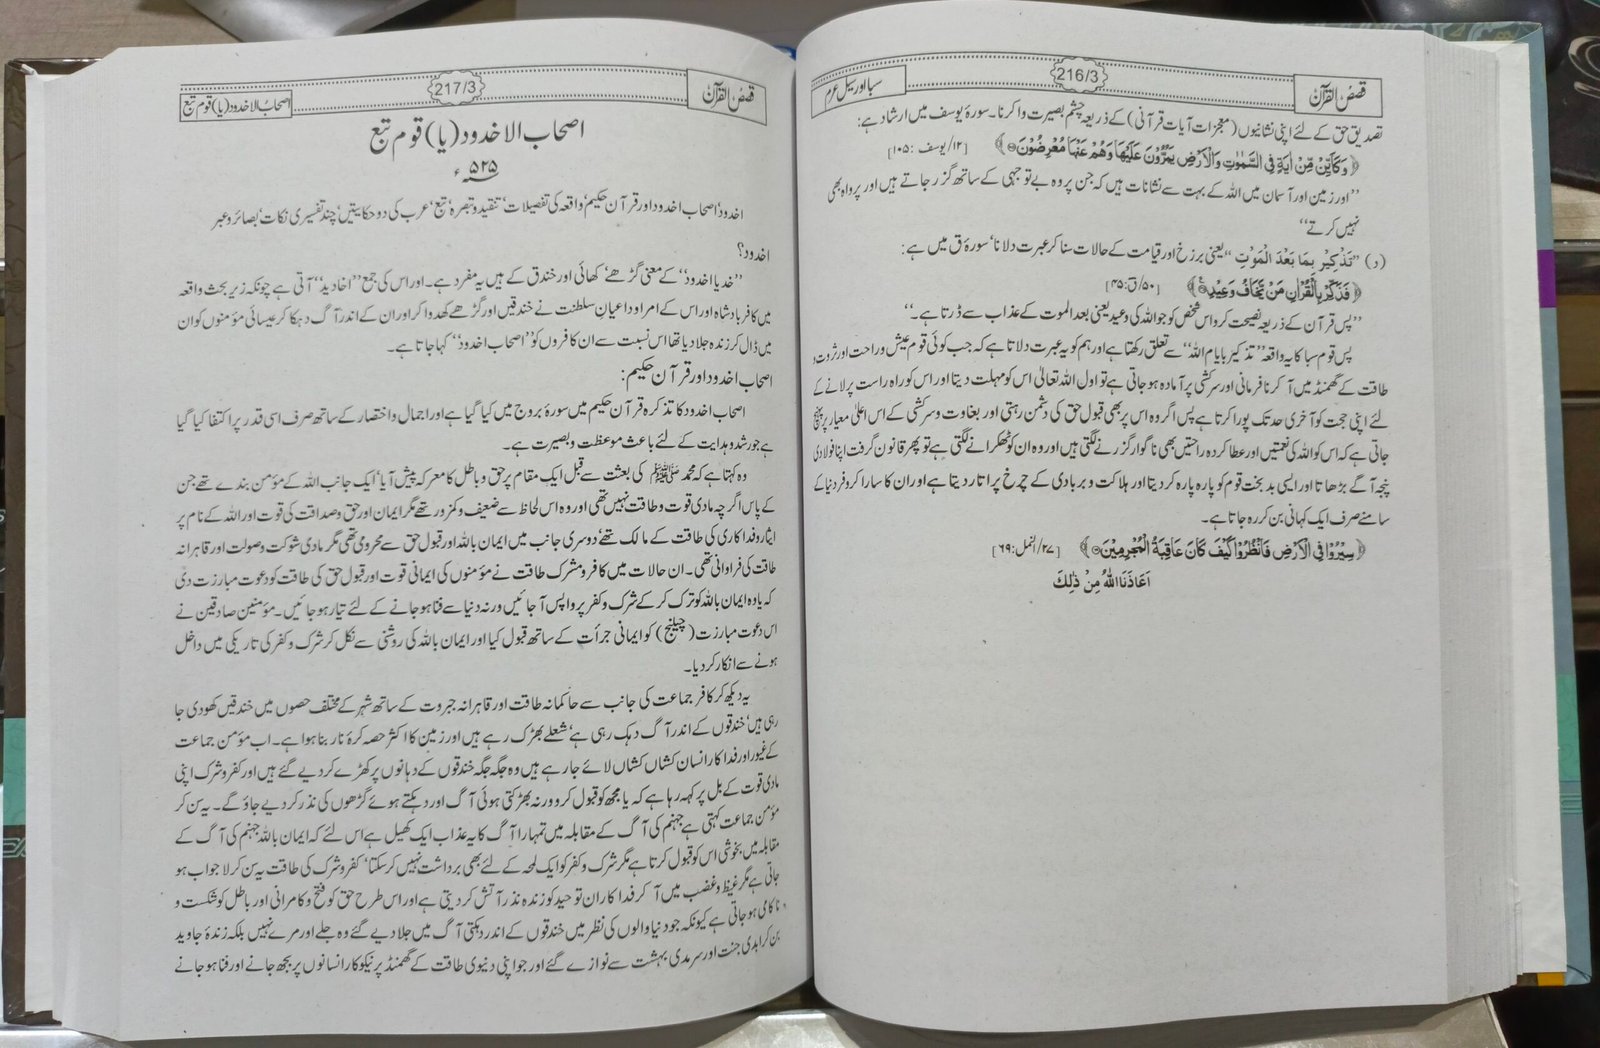 قصص القرآن
216/3
سبا اور سیل عرم
تصدیق حق کے لئے اپنی نشانیوں (معجزات آیات قرآنی) کے ذریعہ چشم بصیرت وا کرنا۔ سورۂ یوسف میں ارشاد ہے:
﴿وَكَاَيِّنْ مِّنْ اٰيَةٍ فِي السَّمٰوٰتِ وَالْاَرْضِ يَمُرُّوْنَ عَلَيْهَا وَهُمْ عَنْهَا مُعْرِضُوْنَ﴾ [۱۲/یوسف :۱۰۵]
’’اور زمین اور آسمان میں اللہ کے بہت سے نشانات ہیں کہ جن پر وہ بے توجہی کے ساتھ گزر جاتے ہیں اور پرواہ بھی
نہیں کرتے‘‘
(د) ’’تَذْكِيْرٌ بِمَا بَعْدَ الْمَوْتِ‘‘ یعنی برزخ اور قیامت کے حالات سنا کر عبرت دلانا‘ سورۂ ق میں ہے:
﴿فَذَكِّرْ بِالْقُرْاٰنِ مَنْ يَّخَافُ وَعِيْدِ﴾ [۵۰/ق:۴۵]
’’پس قرآن کے ذریعہ نصیحت کرو اس شخص کو جو اللہ کی وعید یعنی بعد الموت کے عذاب سے ڈرتا ہے۔‘‘
پس قوم سبا کا یہ واقعہ ’’تذکیر بایام اللہ‘‘ سے تعلق رکھتا ہے اور ہم کو یہ عبرت دلاتا ہے کہ جب کوئی قوم عیش و راحت اور ثروت و
طاقت کے گھمنڈ میں آ کر نافرمانی اور سرکشی پر آمادہ ہو جاتی ہے تو اول اللہ تعالیٰ اس کو مہلت دیتا اور اس کو راہ راست پر لانے کے
لئے اپنی حجت کو آخری حد تک پورا کرتا ہے پس اگر وہ اس پر بھی قبول حق کی دشمن رہتی اور بغاوت و سرکشی کے اس اعلیٰ معیار پر پہنچ
جاتی ہے کہ اس کو اللہ کی نعمتیں اور عطا کردہ راحتیں بھی ناگوار گزرنے لگتی ہیں اور وہ ان کو ٹھکرانے لگتی ہے تو پھر قانون گرفت اپنا فولادی
پنجہ آگے بڑھاتا اور ایسی بدبخت قوم کو پارہ پارہ کر دیتا اور ہلاکت و بربادی کے چرخ پر اتار دیتا ہے اور ان کا سارا کروفر دنیا کے
سامنے صرف ایک کہانی بن کر رہ جاتا ہے۔
﴿سِيْرُوْا فِي الْاَرْضِ فَانْظُرُوْا كَيْفَ كَانَ عَاقِبَةُ الْمُجْرِمِيْنَ﴾ [۲۷/النمل:۶۹]
اَعَاذَنَا اللّٰهُ مِنْ ذٰلِكَ
قصص القرآن
217/3
اصحاب الاخدود (یا) قوم تبع
اصحاب الاخدود (یا) قوم تبع
۵۲۵ء
اخدود‘ اصحاب اخدود اور قرآن حکیم‘ واقعہ کی تفصیلات‘ تنقید و تبصرہ‘ تبع‘ عرب کی دو حکایتیں‘ چند تفسیری نکات‘ بصائر و عبر
اخدود؟
’’خد یا اخدود‘‘ کے معنی گڑھے‘ کھائی اور خندق کے ہیں یہ مفرد ہے۔ اور اس کی جمع ’’اخادید‘‘ آتی ہے چونکہ زیر بحث واقعہ
میں کافر بادشاہ اور اس کے امرا و اعیان سلطنت نے خندقیں اور گڑھے کھدوا کر اور ان کے اندر آگ دہکا کر عیسائی مؤمنوں کو ان
میں ڈال کر زندہ جلا دیا تھا اس نسبت سے ان کافروں کو ’’اصحاب اخدود‘‘ کہا جاتا ہے۔
اصحاب اخدود اور قرآن حکیم:
اصحاب اخدود کا تذکرہ قرآن حکیم میں سورۂ بروج میں کیا گیا ہے اور اجمال و اختصار کے ساتھ صرف اسی قدر پر اکتفا کیا گیا
ہے جو رشد و ہدایت کے لئے باعث موعظت و بصیرت ہے۔
وہ کہتا ہے کہ محمد ﷺ کی بعثت سے قبل ایک مقام پر حق و باطل کا معرکہ پیش آیا‘ ایک جانب اللہ کے مؤمن بندے تھے جن
کے پاس اگرچہ مادی قوت و طاقت نہیں تھی اور وہ اس لحاظ سے ضعیف و کمزور تھے مگر ایمان اور حق و صداقت کی قوت اور اللہ کے نام پر
ایثار و فدا کاری کی طاقت کے مالک تھے‘ دوسری جانب میں ایمان باللہ اور قبول حق سے محرومی تھی مگر مادی شوکت و صولت اور قاہرانہ
طاقت کی فراوانی تھی۔ ان حالات میں کافر و مشرک طاقت نے مؤمنوں کی ایمانی قوت اور قبول حق کی طاقت کو دعوت مبارزت دی
کہ یا وہ ایمان باللہ کو ترک کر کے شرک و کفر پر واپس آ جائیں ورنہ دنیا سے فنا ہو جانے کے لئے تیار ہو جائیں۔ مؤمنین صادقین نے
اس دعوت مبارزت (چیلنج) کو ایمانی جرأت کے ساتھ قبول کیا اور ایمان باللہ کی روشنی سے نکل کر شرک و کفر کی تاریکی میں داخل
ہونے سے انکار کر دیا۔
یہ دیکھ کر کافر جماعت کی جانب سے حاکمانہ طاقت اور قاہرانہ جبروت کے ساتھ شہر کے مختلف حصوں میں خندقیں کھودی جا
رہی ہیں‘ خندقوں کے اندر آگ دہک رہی ہے‘ شعلے بھڑک رہے ہیں اور زمین کا اکثر حصہ کرۂ نار بنا ہوا ہے۔ اب مؤمن جماعت
کے غیور اور فدا کار انسان کشاں کشاں لائے جا رہے ہیں وہ جگہ جگہ خندقوں کے دہانوں پر کھڑے کر دیے گئے ہیں اور کفر و شرک اپنی
مادی قوت کے بل پر کہہ رہا ہے کہ یا مجھ کو قبول کرو ورنہ بھڑکتی ہوئی آگ اور دہکتے ہوئے گڑھوں کی نذر کر دیے جاؤ گے۔ یہ سن کر
مؤمن جماعت کہتی ہے جہنم کی آگ کے مقابلہ میں تمہارا آگ کا یہ عذاب ایک کھیل ہے اس لئے کہ ایمان باللہ جہنم کی آگ کے
مقابلہ میں بخوشی اس کو قبول کرتا ہے مگر شرک و کفر کو ایک لمحہ کے لئے بھی برداشت نہیں کر سکتا‘ کفر و شرک کی طاقت یہ سن کر لا جواب ہو
جاتی ہے مگر غیظ و غضب میں آ کر فدا کاران توحید کو زندہ نذر آتش کر دیتی ہے اور اس طرح حق کو فتح و کامرانی اور باطل کو شکست و
ناکامی ہو جاتی ہے کیونکہ جو دنیا والوں کی نظر میں خندقوں کے اندر دہکتی آگ میں جلا دیے گئے وہ جلے اور مرے نہیں بلکہ زندۂ جاوید
بن کر ابدی جنت اور سرمدی بہشت سے نوازے گئے اور جو اپنی دنیوی طاقت کے گھمنڈ پر نیکو کار انسانوں پر بجھ جانے اور فنا ہو جانے